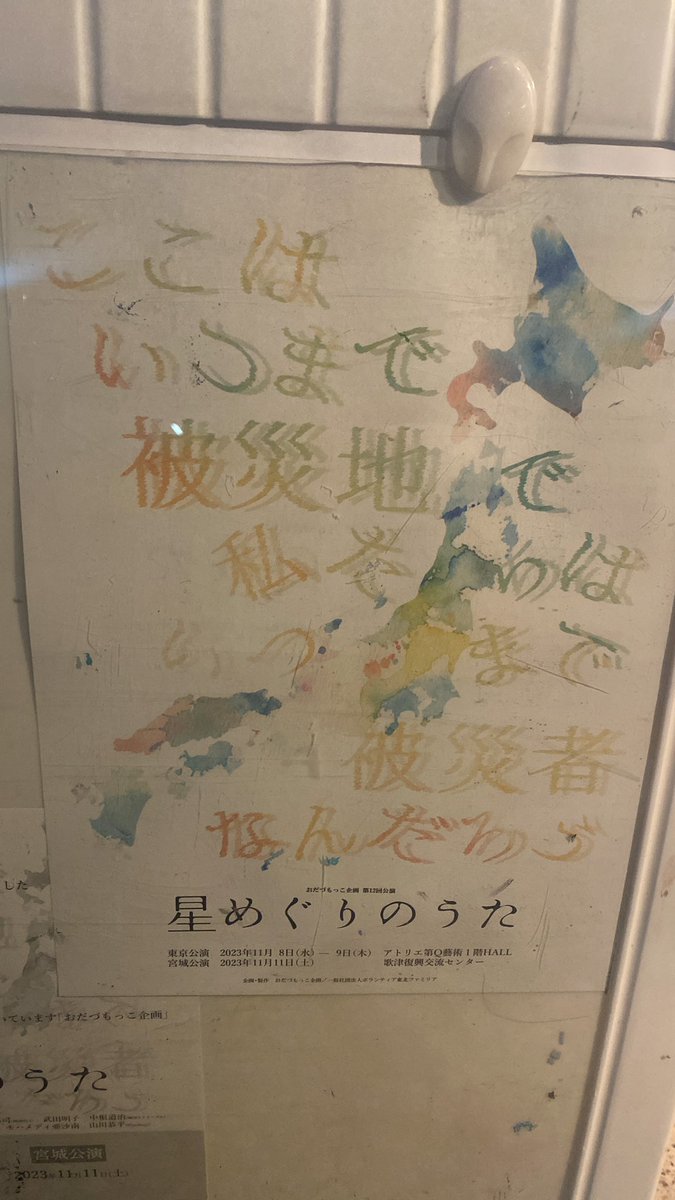 ここは
いつまで
被災地で
私たちは
いつまで
被災者
なんだろう
おだづもっこ企画 第12回公演
星めぐりのうた
東京公演 2023年11月 8日(水) ― 9日(木) アトリエ第Q藝術1階HALL
宮城公演 2023年11月11日(土) 歌津復興交流センター
企画・製作 おだづもっこ企画/一般社団法人ボランティア東北ファミリア
した
いています「おだづもっこ企画」
うた
武田明子 中根道治
モハメディ亜沙南 山田恭平
宮城公演
2023年11月11日(土)